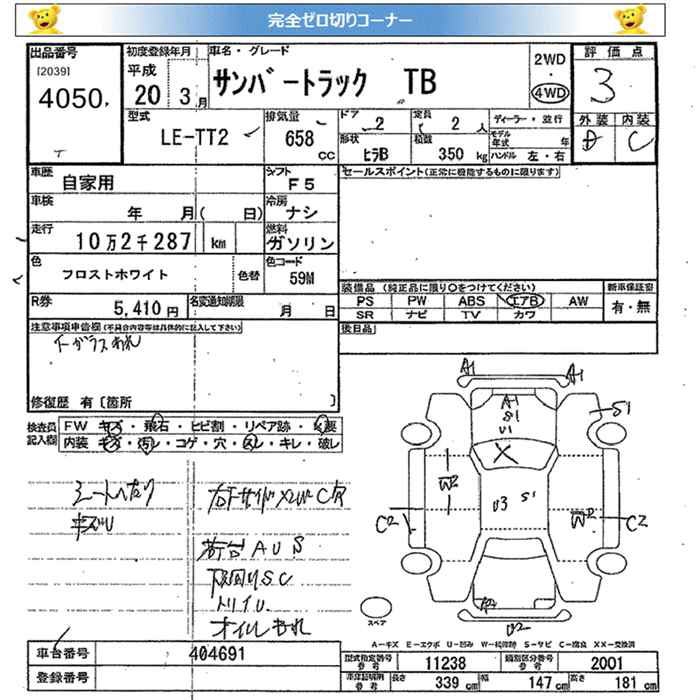 完全ゼロ切りコーナー
出品番号 初度登録年月 車名・グレード 評価点
[2039] 平成 2WD
4050. 20 3月 サンバートラック TB 4WD 3
型式 排気量 ドア 定員 ディーラー・並行 外装 内装
2 2人 モデル年式 年 D C
LE-TT2 658cc 形状 ヒラB 積数 350kg ハンドル 左・右
車歴 自家用 シフト F5 セールスポイント(正常に機能するものに限ります)
車検 年 月( 日) 冷房 ナシ
走行 10万2千287 km 燃料 ガソリン
色 フロストホワイト 色替 色コード 59M
装備品(純正品に限り○をつけてください) 新車保証書
R券 5,410円 名変通知期限 月 日 PS PW ABS エアB AW 有・無
SR ナビ TV カワ
注意事項申告欄(不具合内容等は具体的に記入して下さい) 後日品
Fガラスわれ
修復歴 有[箇所 ]
検査員記入欄 FW キズ・飛石・ヒビ割・リペア跡・X要
内装 キズ・汚レ・コゲ・穴・スレ・キレ・破レ
A1 A1
A1
S1
U1
S1
X
シートへたり
キズU
荷台AUS
下回りSC
トリイU
オイルもれ
W2
U3 S1
C2 C2
A2
U2
スペア
A-キズ E-エクボ U-凹み W-補修跡 S-サビ C-腐食 XX-交換済
車台番号 404691
型式指定番号参考 11238 類別区分番号参考 2001
登録番号
車庫証明用参考 長さ 339cm 幅 147cm 高さ 181cm